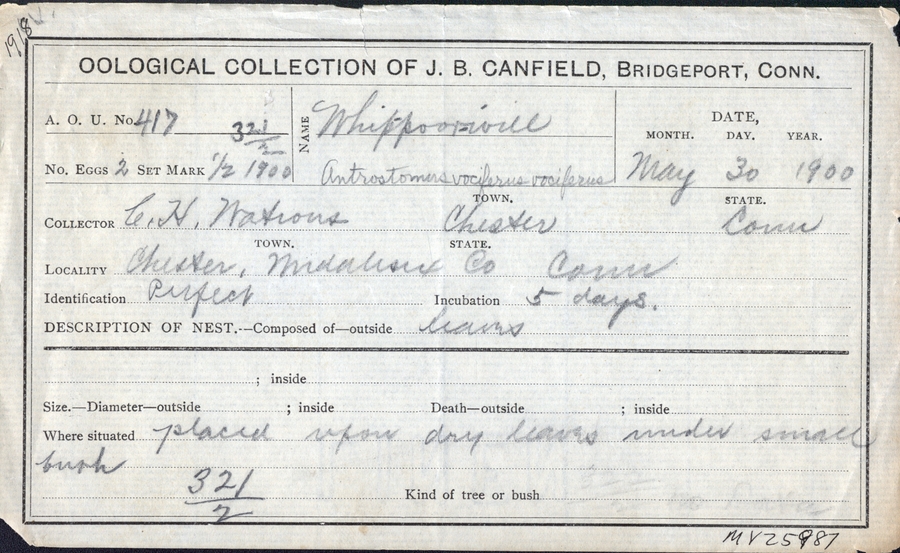 1918
OOLOGICAL COLLECTION OF J. B. CANFIELD, BRIDGEPORT, CONN.
A. O. U. No. 417 321/2 NAME Whip-poor-will DATE,
MONTH. DAY. YEAR.
No. EGGS 2 SET MARK 1/2 1900 Antrostomus vociferus vociferus May 30 1900
TOWN. STATE.
COLLECTOR C. H. Watrous Chester Conn
TOWN. STATE.
LOCALITY Chester, Middlesex Co Conn
Identification Perfect Incubation 5 days.
DESCRIPTION OF NEST.--Composed of—outside leaves
; inside
Size.—Diameter—outside ; inside Death—outside ; inside
Where situated placed upon dry leaves under small
bush
321/2 Kind of tree or bush
MV25987